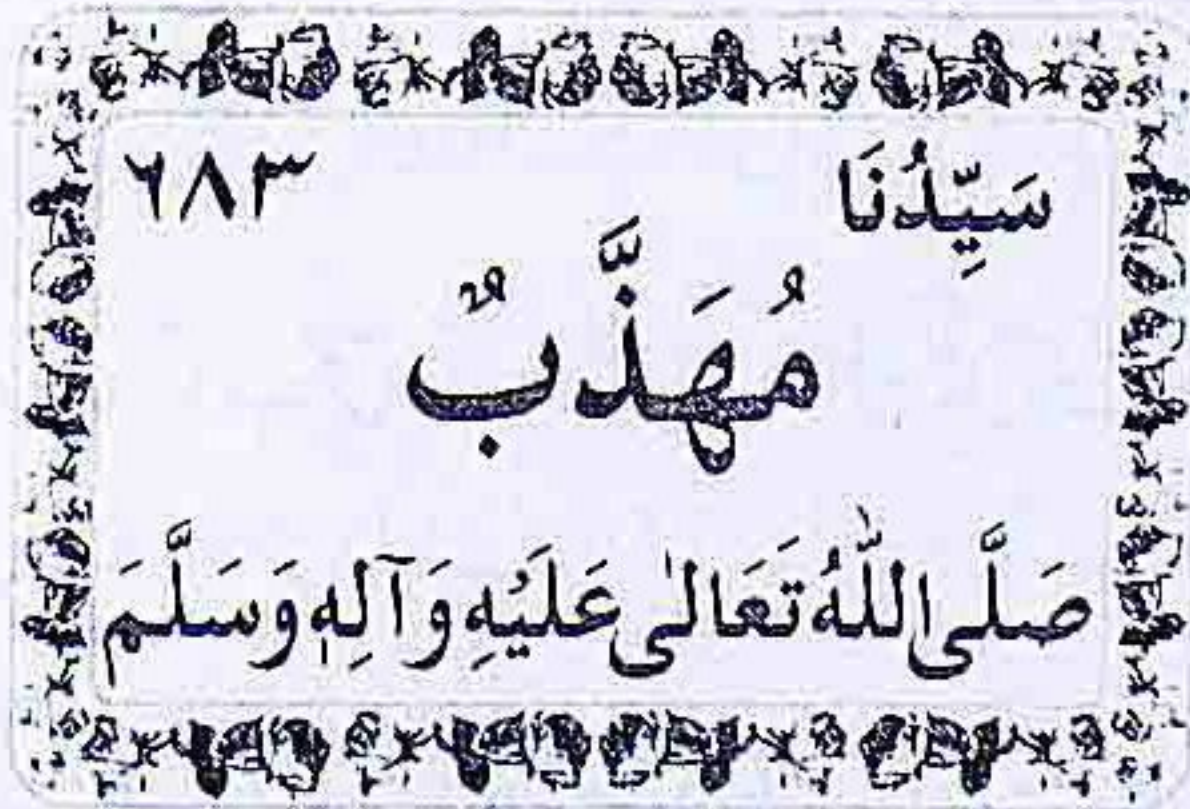 سَيِّدُنَا ٦٨٣
مُهَذَّبٌ
صَلَّى اللّٰهُ تَعَالٰى عَلَيْهِ وَآلِهٖ وَسَلَّمَ